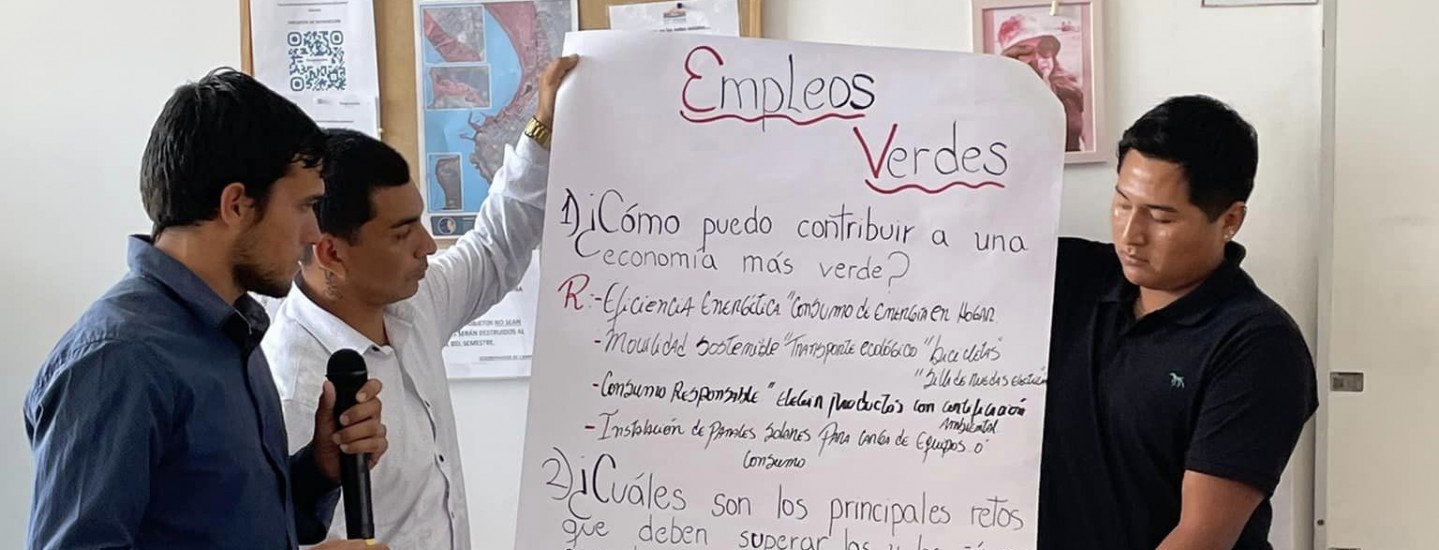 Empleos
Verdes
1) ¿Cómo puedo contribuir a una
economía más verde?
R:-Eficiencia Energética "Consumo de Energía en Hogar
-Movilidad Sostenible "Transporte ecológico "bicicletas"
"Silla de ruedas eléctrica
-Consumo Responsable "elegir productos con certificación
Ambiental
-Instalación de Paneles Solares Para carga de Equipos o
Consumo
2) ¿Cuáles son los principales retos
que deben superar las
SERÁN DESTRUIDOS AL
DEL SEMESTRE.